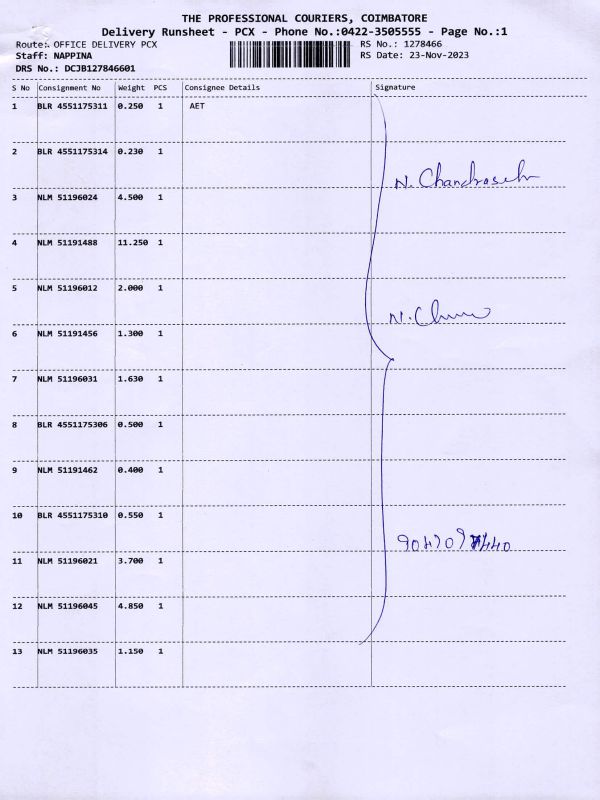 THE PROFESSIONAL COURIERS, COIMBATORE
Delivery Runsheet - PCX - Phone No.:0422-3505555 - Page No.:1
Route:. OFFICE DELIVERY PCX RS No.: 1278466
Staff: NAPPINA RS Date: 23-Nov-2023
DRS No.: DCJB127846601
S No Consignment No Weight PCS Consignee Details Signature
1 BLR 4551175311 0.250 1 AET
2 BLR 4551175314 0.230 1
N. Chandrasekr
3 NLM 51196024 4.500 1
4 NLM 51191488 11.250 1
5 NLM 51196012 2.000 1
N.
6 NLM 51191456 1.300 1
7 NLM 51196031 1.630 1
8 BLR 4551175306 0.500 1
9 NLM 51191462 0.400 1
10 BLR 4551175310 0.550 1
11 NLM 51196021 3.700 1
12 NLM 51196045 4.850 1
13 NLM 51196035 1.150 1